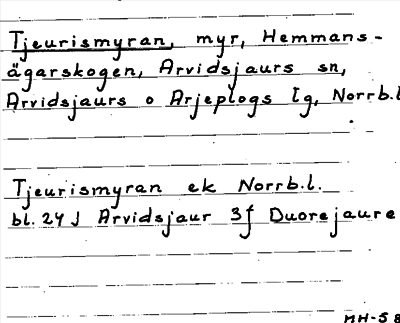 Tjeurismyran, myr, Hemmans-
ägarskogen, Arvidsjaurs sn,
Arvidsjaurs o Arjeplogs lg, Norrb.l
Tjeurismyran ek Norrb.l.
bl. 24 J Arvidsjaur 3f Duorejaure
MH-58